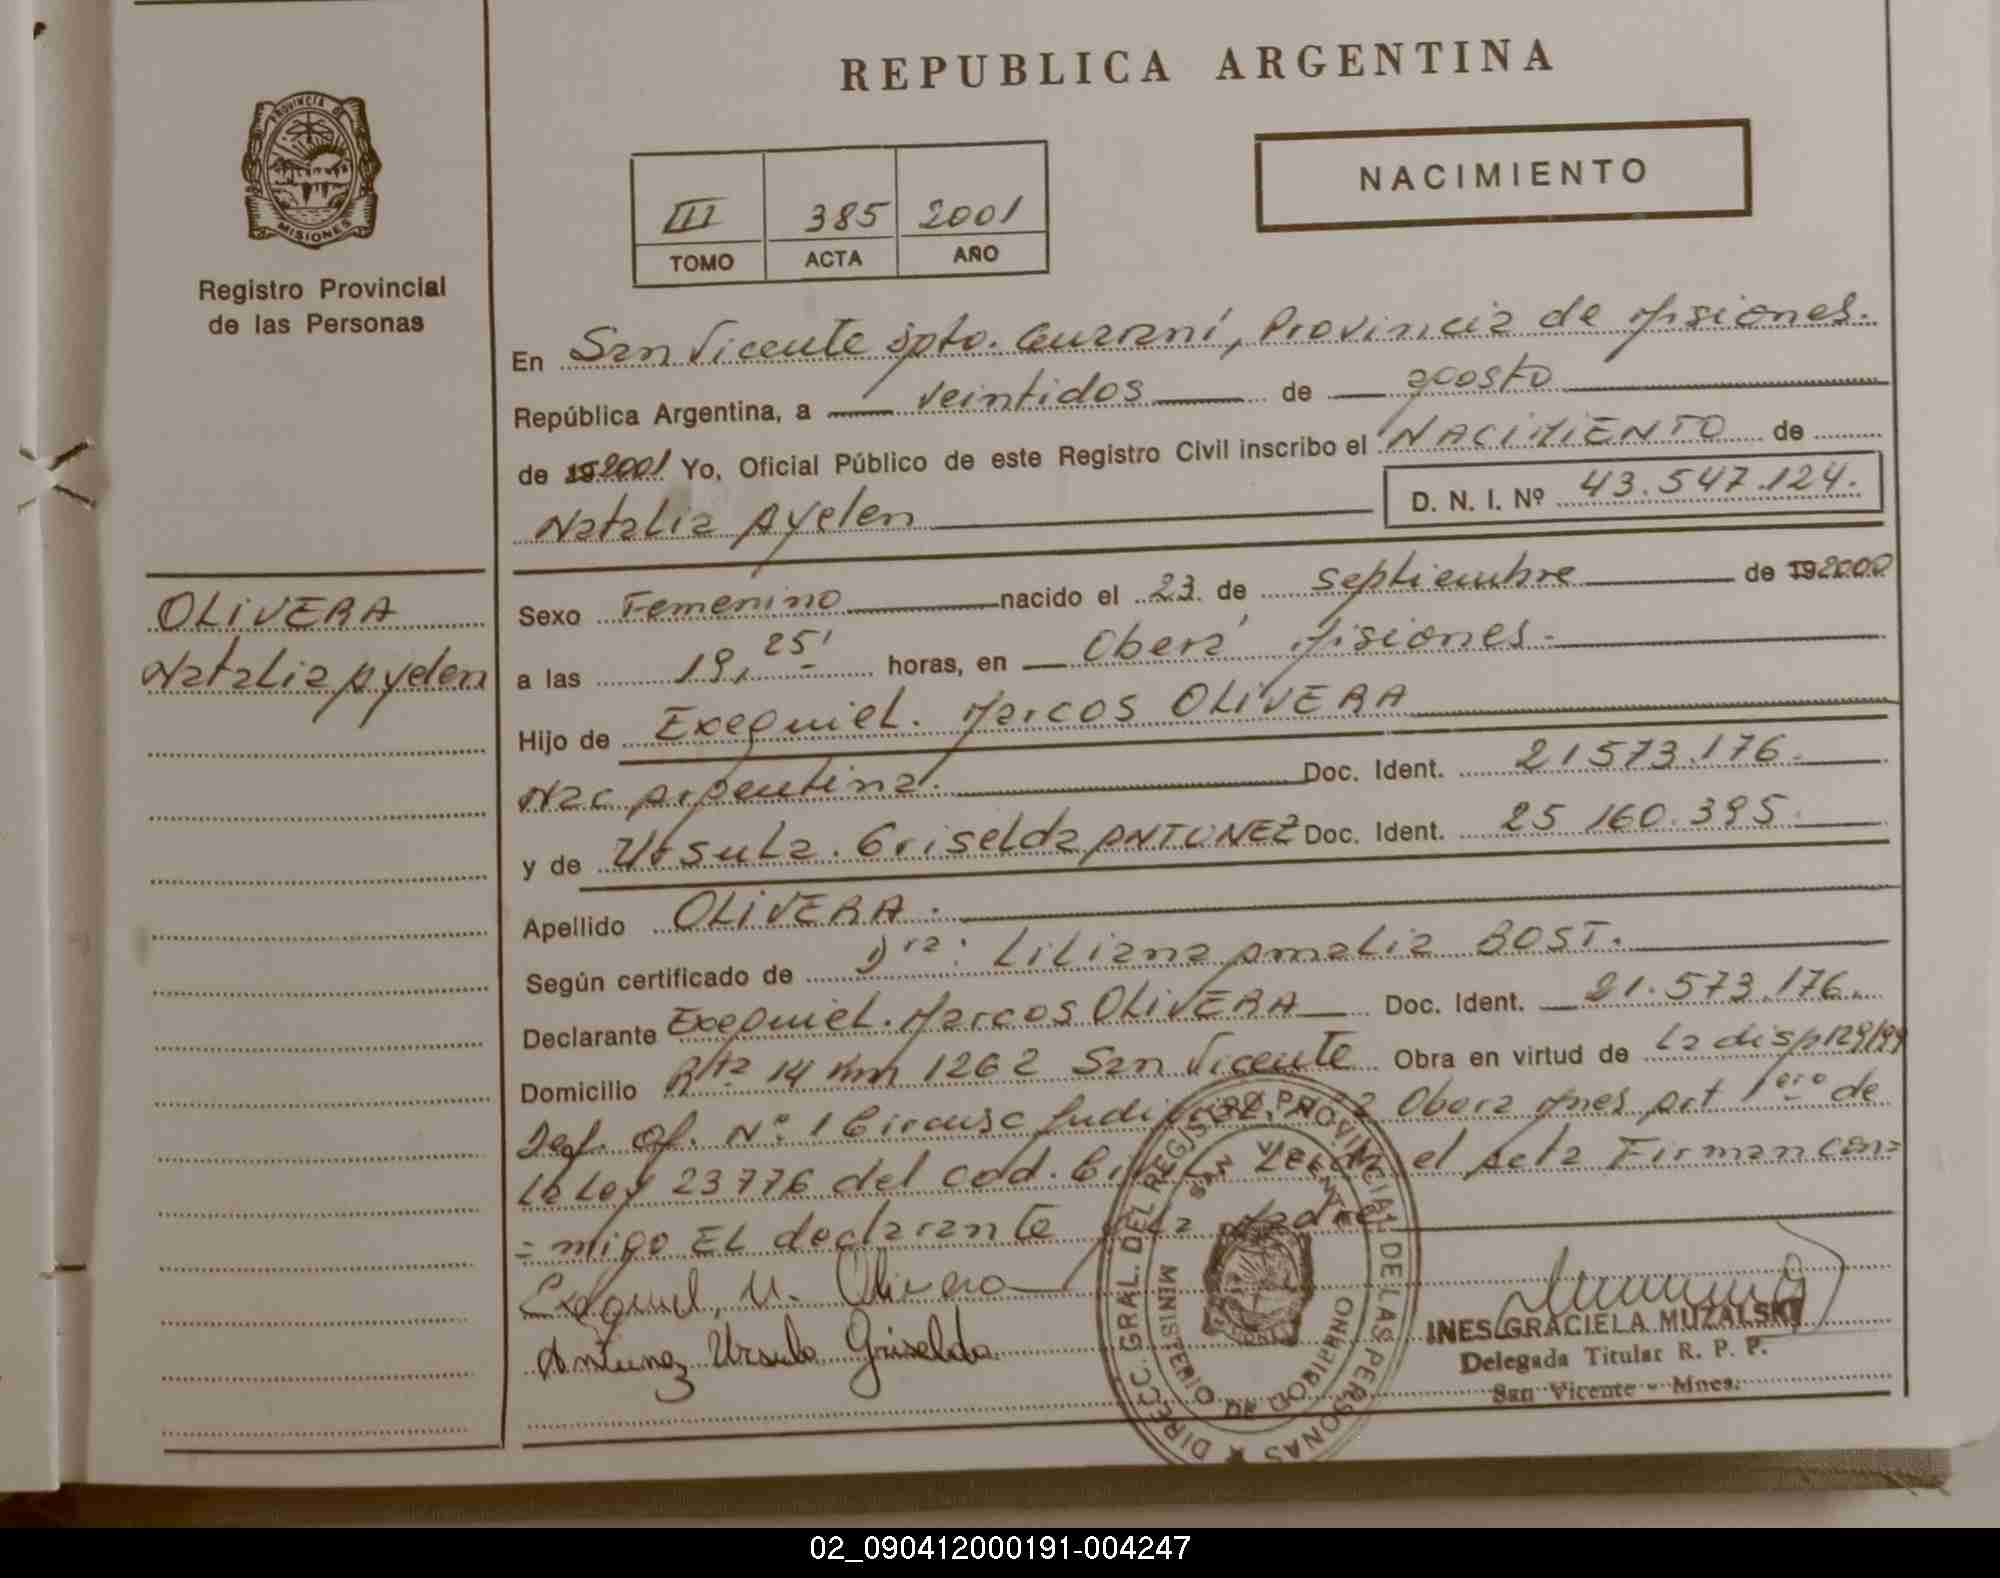 REPUBLICA ARGENTINA
PROVINCIA DE
MISIONES
Registro Provincial
de las Personas
NACIMIENTO
III 385 2001
TOMO ACTA AÑO
En San Vicente Dpto. Guaraní, Provincia de Misiones.
República Argentina, a veintidos de agosto
de 192001 Yo, Oficial Público de este Registro Civil inscribo el NACIMIENTO de
Natalia Ayelen D. N. I. Nº 43.547.124.
OLIVERA
Natalia Ayelen
Sexo Femenino nacido el 23 de septiembre de 192000
a las 19,25' horas, en Oberá Misiones.
Hijo de Exequiel. Marcos OLIVERA
Nac Argentina. Doc. Ident. 21573.176.
y de Ursula. Griselda ANTUNEZ Doc. Ident. 25 160.395.
Apellido OLIVERA.
Según certificado de Dra: Liliana Amalia BOST.
Declarante Exequiel. Marcos OLIVERA Doc. Ident. 21.573.176.
Domicilio Rta 14 Km 1262 San Vicente Obra en virtud de La disp 129/99
Def. Of. Nº 1 Circunsc Judicial Obera Mnes Art 1ero de
La Ley 23776 del cod. el Acta Firman con=
=migo EL declarante y La Madre
Exequiel, M. Olivera
Antunez Ursula Griselda
DIRECC. GRAL. DEL REGISTRO PROVINCIAL DE LAS PERSONAS
MINISTERIO DE GOBIERNO
SAN VICENTE
INES GRACIELA MUZALSKI
Delegada Titular R. P. P.
San Vicente - Mnes.
02_090412000191-004247